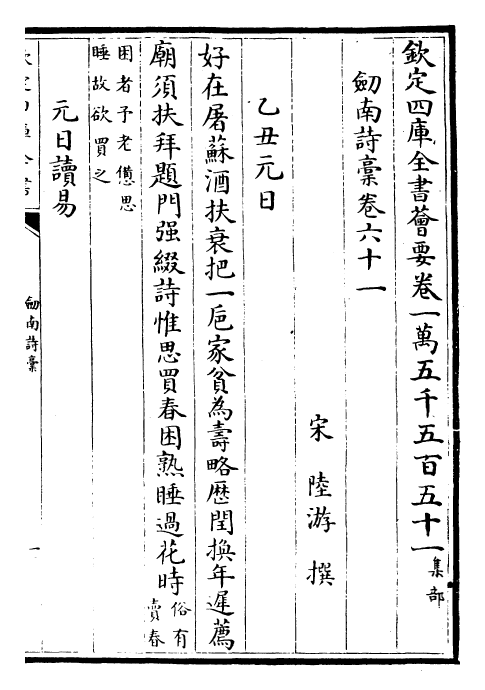 欽定四庫全書薈要卷一萬五千五百五十一集部
劒南詩稾卷六十一
宋 陸游 撰
乙丑元日
好在屠蘇酒扶衰把一巵家貧為壽略歴閏換年遲薦
廟須扶拜題門强綴詩惟思買春困熟睡過花時俗有
賣春
困者予老憊思
睡故欲買之
元日讀易
劒南詩稾
一